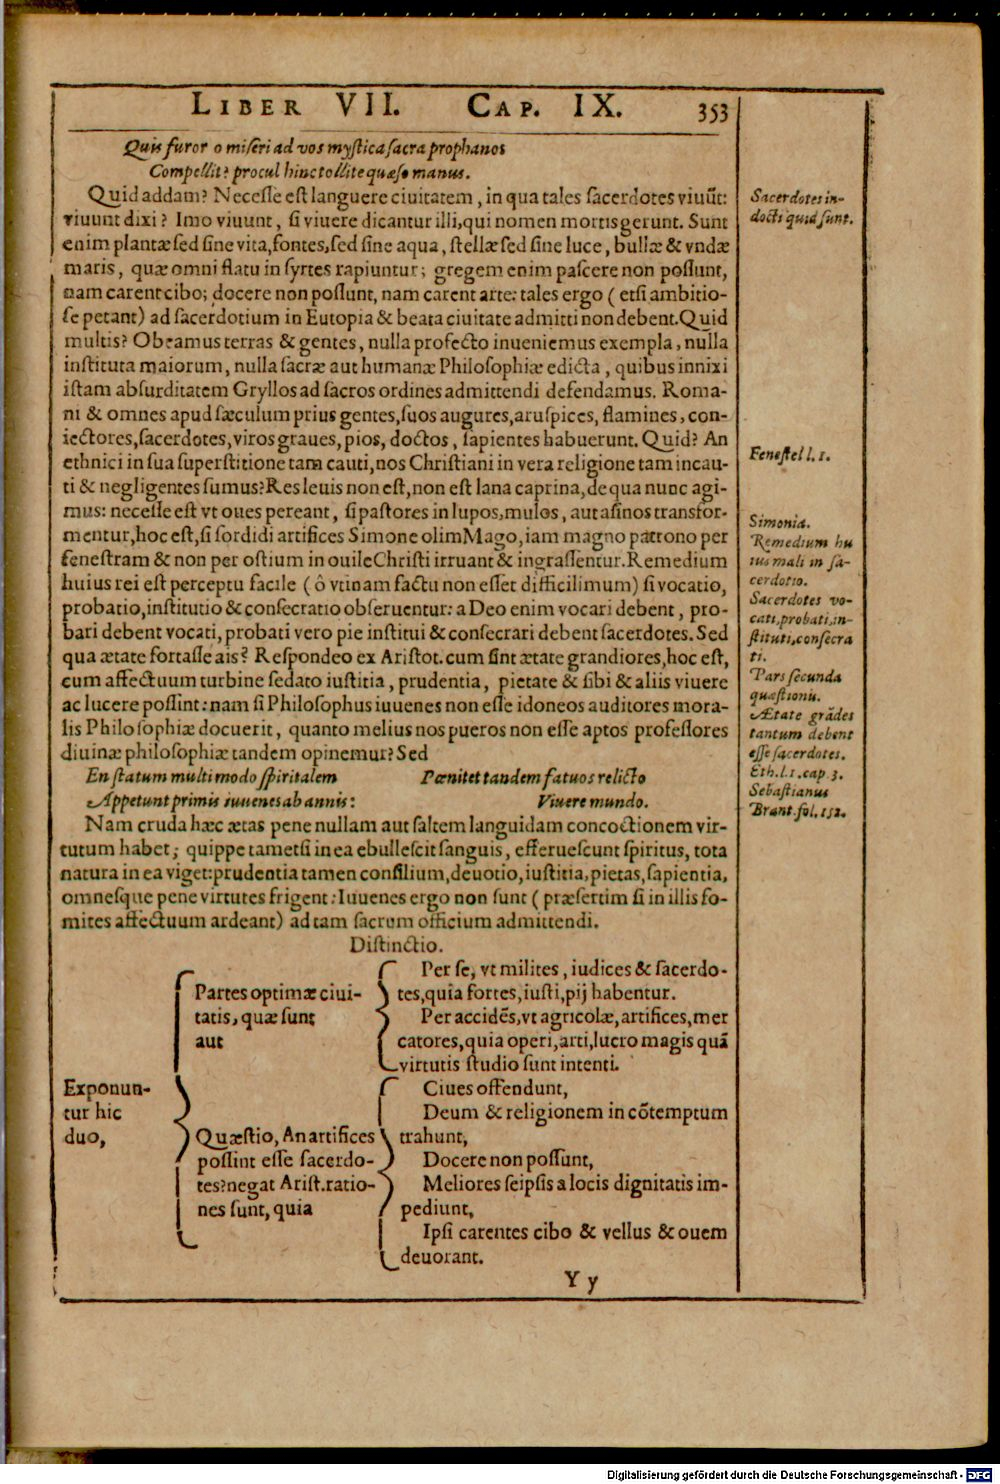 LIBER VII. CAP. IX. 353
Quis furor o miseri ad vos mystica sacra prophanos
Compellit? procul hinc tollite quæso manus.
Quid addam? Necesse est languere ciuitatem, in qua tales sacerdotes viuũt:
viuunt dixi? Imo viuunt, si viuere dicantur illi, qui nomen mortis gerunt. Sunt
enim plantæ sed sine vita, fontes, sed sine aqua, stellæ sed sine luce, bullæ & vndæ
maris, quæ omni flatu in syrtes rapiuntur; gregem enim pascere non possunt,
nam carent cibo; docere non possunt, nam carent arte: tales ergo (etsi ambitio-
se petant) ad sacerdotium in Eutopia & beata ciuitate admitti non debent. Quid
multis? Obeamus terras & gentes, nulla profecto inueniemus exempla, nulla
instituta maiorum, nulla sacræ aut humanæ Philosophiæ edicta, quibus innixi
istam absurditatem Gryllos ad sacros ordines admittendi defendamus. Roma-
ni & omnes apud sæculum prius gentes, suos augures, aruspices, flamines, con-
iectores, sacerdotes, viros graues, pios, doctos, sapientes habuerunt. Quid? An
ethnici in sua superstitione tam cauti, nos Christiani in vera religione tam incau-
ti & negligentes sumus? Res leuis non est, non est lana caprina, de qua nunc agi-
mus: necesse est vt oues pereant, si pastores in lupos, mulos, aut asinos transfor-
mentur, hoc est, si sordidi artifices Simone olim Mago, iam magno patrono per
fenestram & non per ostium in ouile Christi irruant & ingrassentur. Remedium
huius rei est perceptu facile (ô vtinam factu non esset difficilimum) si vocatio,
probatio, institutio & consecratio obseruentur: a Deo enim vocari debent, pro-
bari debent vocati, probati vero pie institui & consecrari debent sacerdotes. Sed
qua ætate fortasse ais? Respondeo ex Aristot. cum sint ætate grandiores, hoc est,
cum affectuum turbine sedato iustitia, prudentia, pietate & sibi & aliis viuere
ac lucere possint: nam si Philosophus iuuenes non esse idoneos auditores mora-
lis Philosophiæ docuerit, quanto melius nos pueros non esse aptos professores
diuinæ philosophiæ tandem opinemur? Sed
En statum multi modo spiritalem
Appetunt primis iuuenes ab annis:
Pœnitet tandem fatuos relicto
Viuere mundo.
Nam cruda hæc ætas pene nullam aut saltem languidam concoctionem vir-
tutum habet; quippe tametsi in ea ebullescit sanguis, efferuescunt spiritus, tota
natura in ea viget: prudentia tamen consilium, deuotio, iustitia, pietas, sapientia,
omnesque pene virtutes frigent: Iuuenes ergo non sunt (præsertim si in illis fo-
mites affectuum ardeant) ad tam sacrum officium admittendi.
Distinctio.
Exponun-
tur hic
duo,
Partes optimæ ciui-
tatis, quæ sunt
aut
Per se, vt milites, iudices & sacerdo-
tes, quia fortes, iusti, pij habentur.
Per accidẽs, vt agricolæ, artifices, mer
catores, quia operi, arti, lucro magis quã
virtutis studio sunt intenti.
Quæstio, An artifices
possint esse sacerdo-
tes? negat Arist. ratio-
nes sunt, quia
Ciues offendunt,
Deum & religionem in cõtemptum
trahunt,
Docere non possunt,
Meliores seipsis a locis dignitatis im-
pediunt,
Ipsi carentes cibo & vellus & ouem
deuorant.
Y y
Sacerdotes in-
docti quid sunt.
Fenestel l. 1.
Simonia.
Remedium hu
ius mali in sa-
cerdotio.
Sacerdotes vo-
cati, probati, in-
stituti, consecra
ti.
Pars secunda
quæstionis.
Ætate grãdes
tantum debent
esse sacerdotes.
Eth. l. 1. cap. 3.
Sebastianus
Brant. fol. 152.
Digitalisierung gefördert durch die Deutsche Forschungsgemeinschaft - DFG